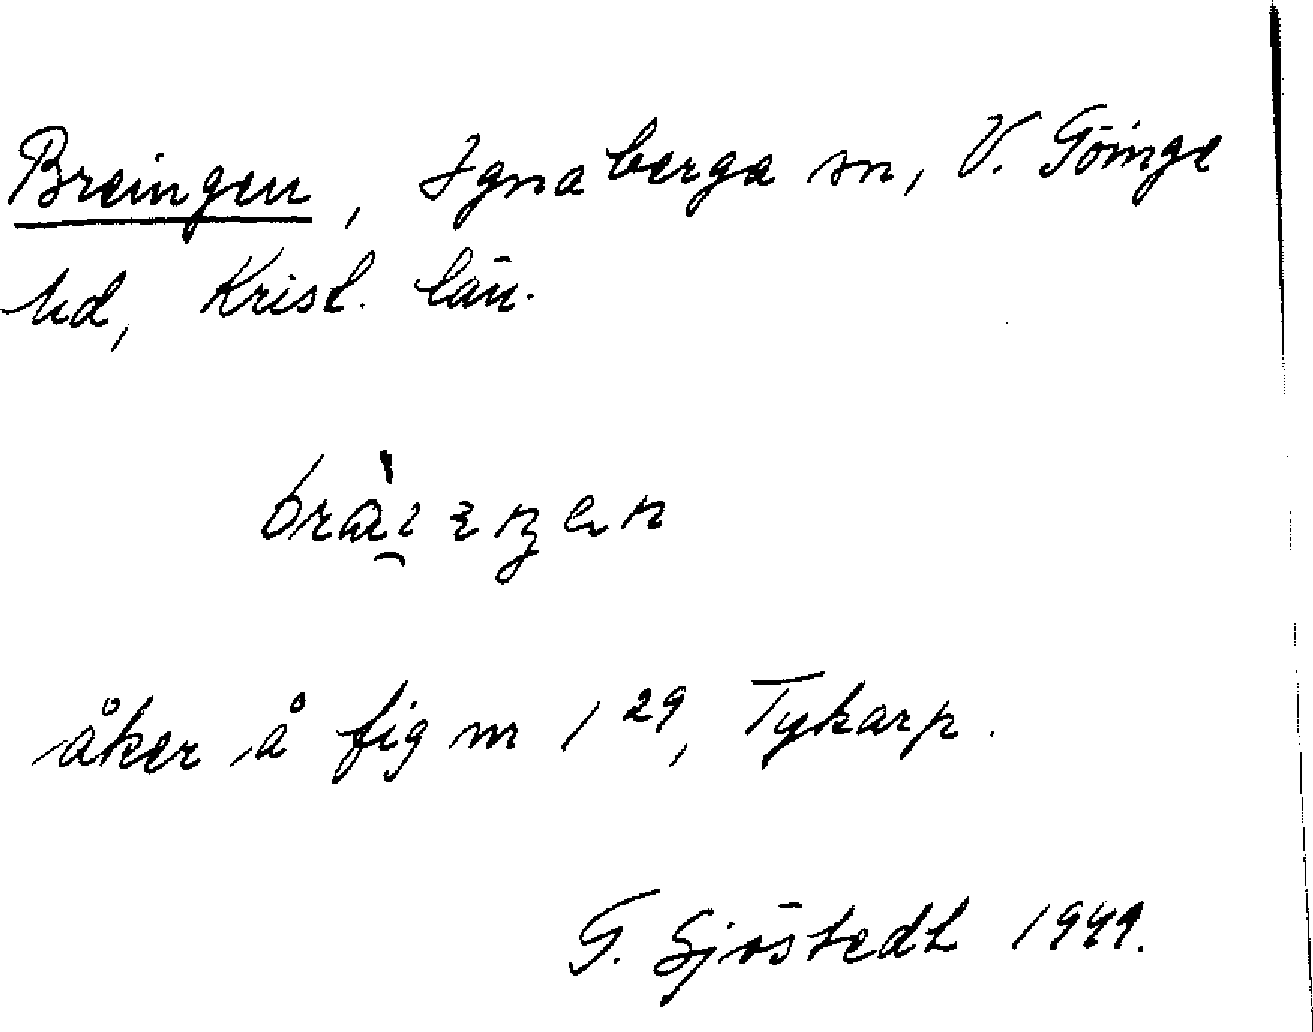 Breingen, Ignaberga sn, V. Göinge
hd, Krist. län.
åker å fig nr 1 29, Tykarp.
G. Sjöstedt 1949.